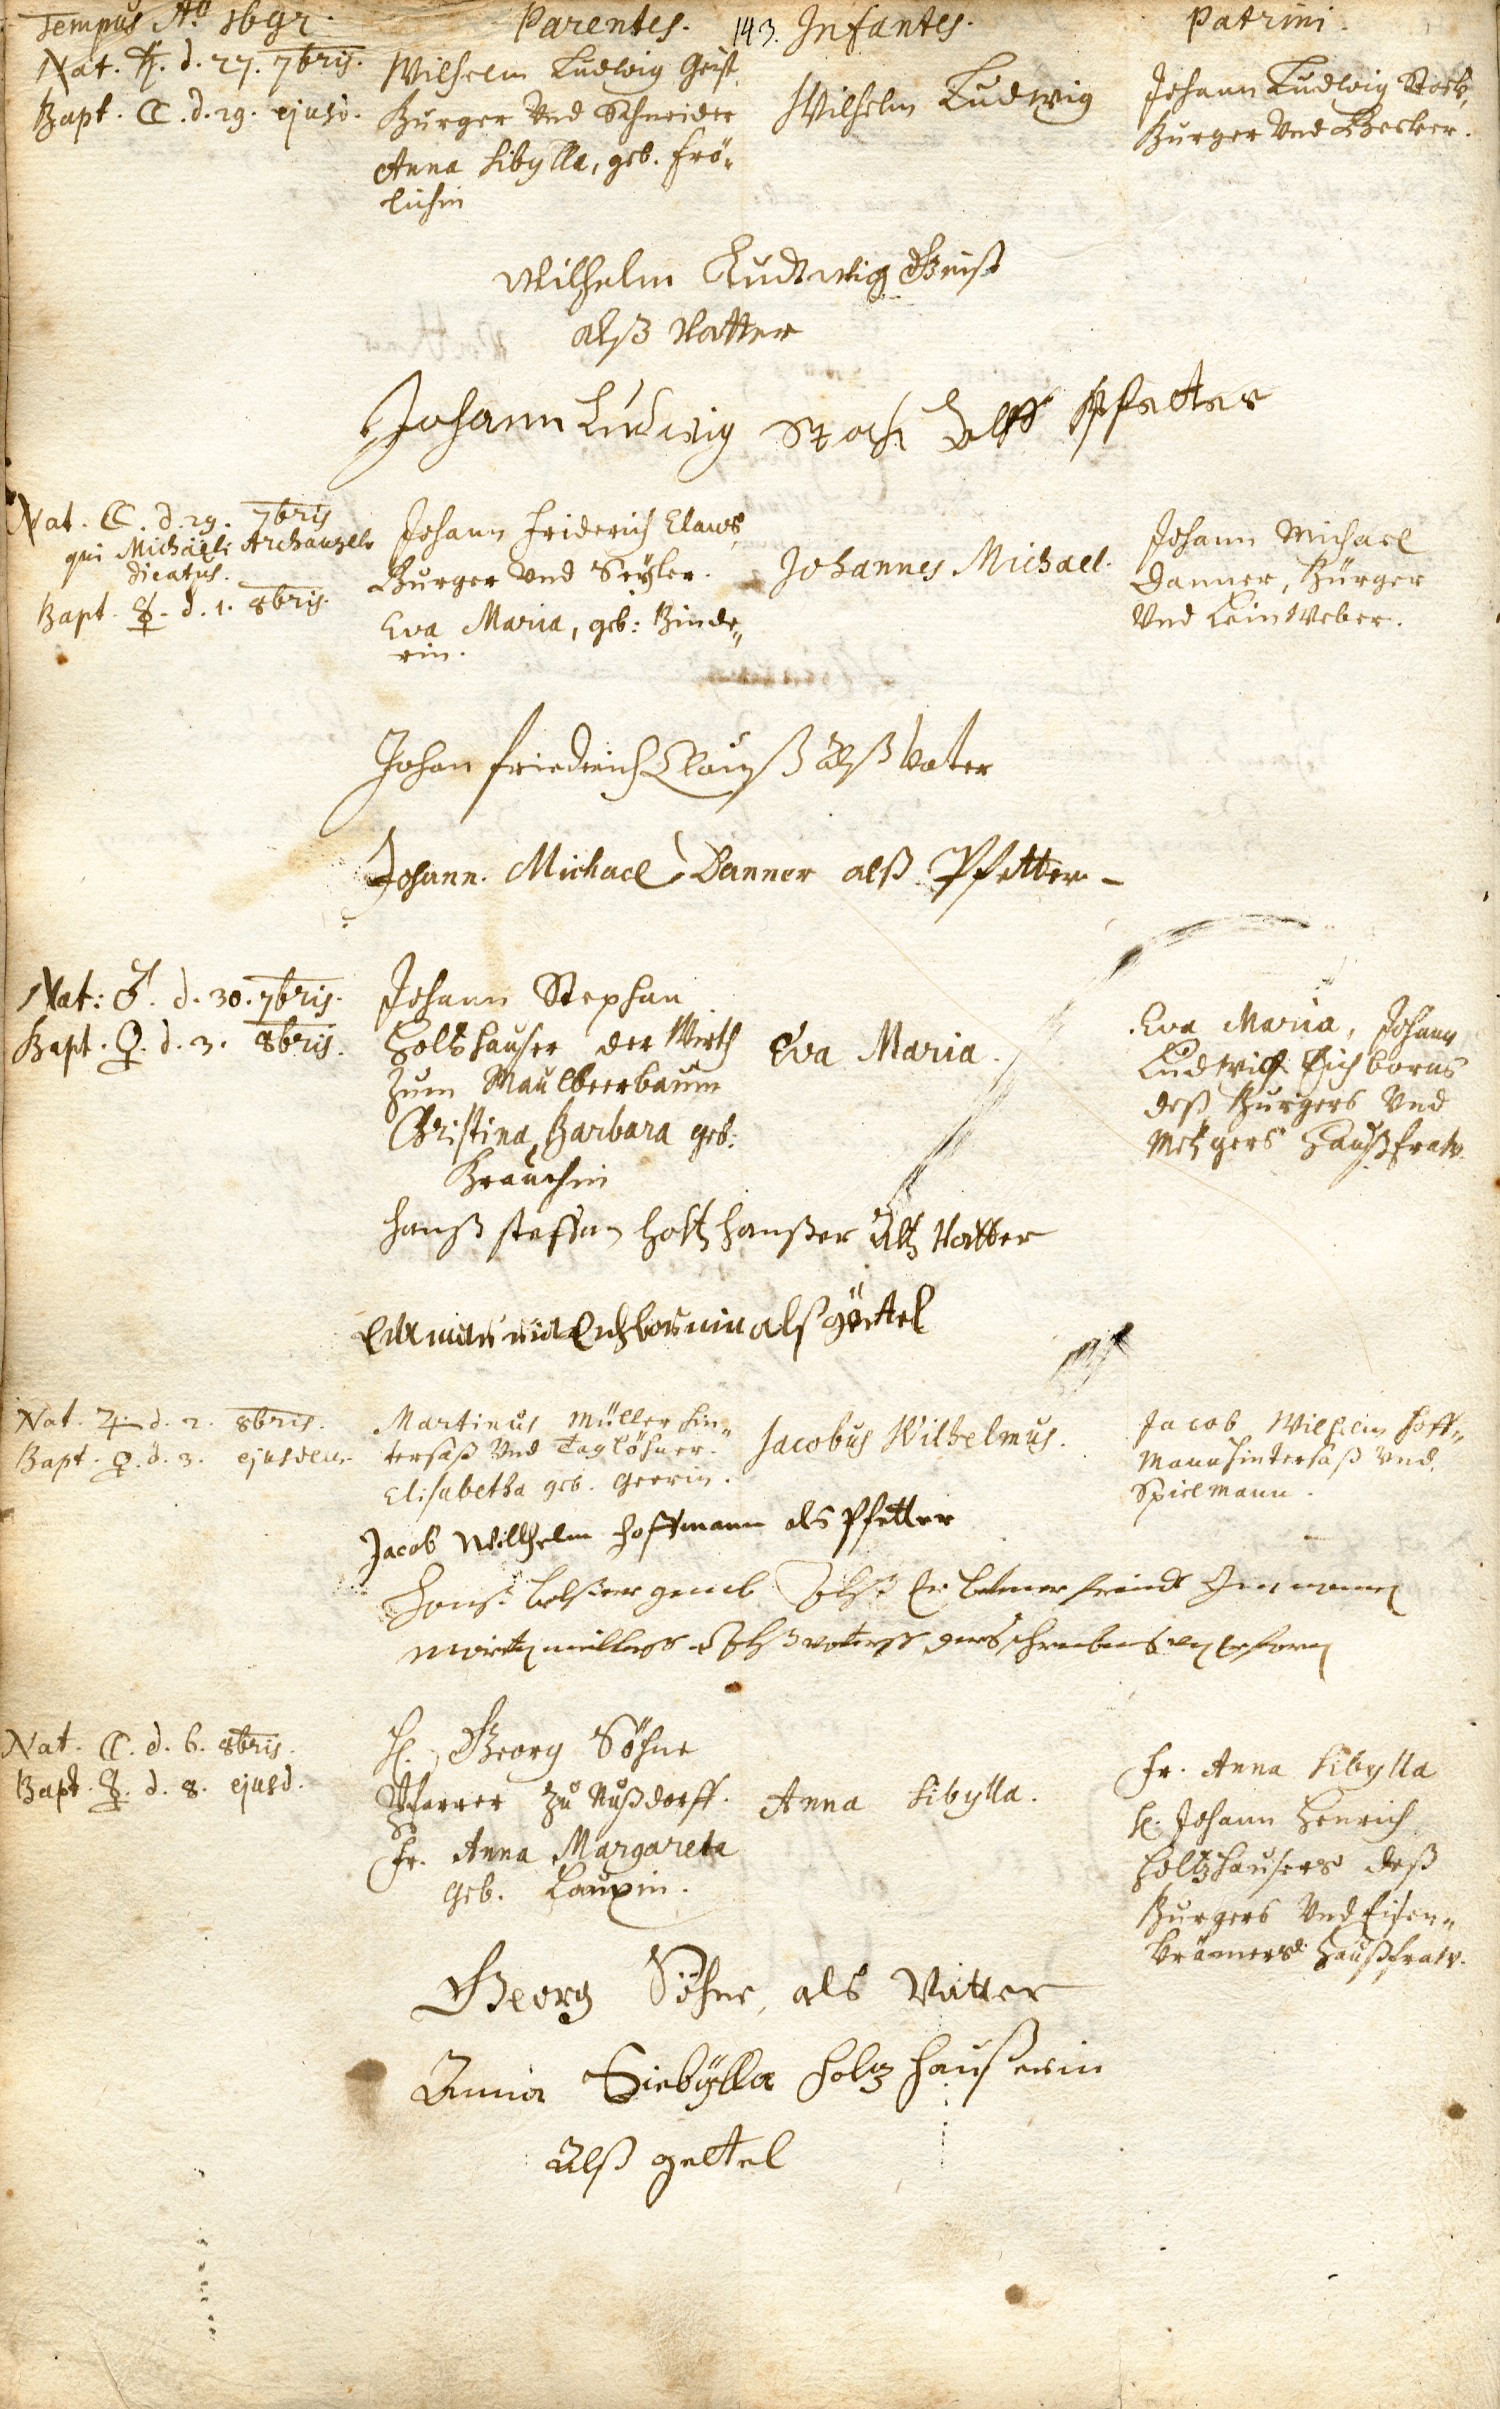 Tempus Aō 1692. Parentes. 143. Infantes. Patrini.
Nat. ♄. d. 27. 7bris.
Bapt. ☾. d. 29. ejusd.
Wilhelm Ludwig Geist
Burger Und Schneider
Anna Sibylla, geb. Frö-
lichin
Wilhelm Ludwig
Johann Ludwig Stock,
Burger Und Becker.
Wilhelm Ludwig Geist
alß Vatter
Johann Ludwig Stock alß Pfetter
Nat. ☾. d. 29. 7bris
qui Michaeli Archangelo
dicatus.
Bapt. ☿. d. 1. 8bris.
Johann Friderich Claus,
Burger Und Seyler.
Eva Maria, geb: Binde-
rin.
Johannes Michael.
Johann Michael
Danner, Bürger
Und Leintweber.
Johan Friedrich Clauß alß Vater
Johann. Michael Danner alß Pfetter
Nat: ♂. d. 30. 7bris.
Bapt. ♀. d. 3. 8bris.
Johann Stephan
Holtzhauser der Wirth
Zum Maulbeerbaum
Christina Barbara geb:
Brauchin
Eva Maria.
Eva Maria, Johann
Ludwig Eichborns
deß Burgers Und
Metzgers Haußfraw.
Hanß Steffan Holtzhaußer alß Vatter
Eva maria Eichbornin alß göttel
Nat. ♃. d. 2. 8bris.
Bapt. ♀. d. 3. ejusdem.
Martinus Müller Hin-
tersaß Und Taglöhner.
Elisabetha geb. Geerin.
Jacobus Wilhelmus.
Jacob Wilhelm Hoff-
mann Hintersaß Und
Spielmann.
Jacob Willhelm Hoffmann als Pfetter
Nat. ☾. d. 6. 8bris.
Bapt. ☿. d. 8. ejusd.
H. Georg Söhne
Pfarrer Zu Nußdorff.
Fr. Anna Margareta
geb. Lauxin.
Anna Sibylla.
Fr. Anna Sibylla
H. Johann Henrich
Holtzhausers deß
Burgers Und Eisen-
krämers Haußfraw.
Georg Söhne, als Vatter
Anna Siebÿlla Holtzhaußerin
alß gettel